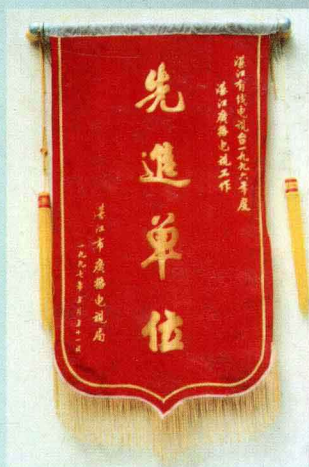 湛江有线电视台一九九六年度
湛江廣播电视工作
先進单位
湛江市廣播电视局